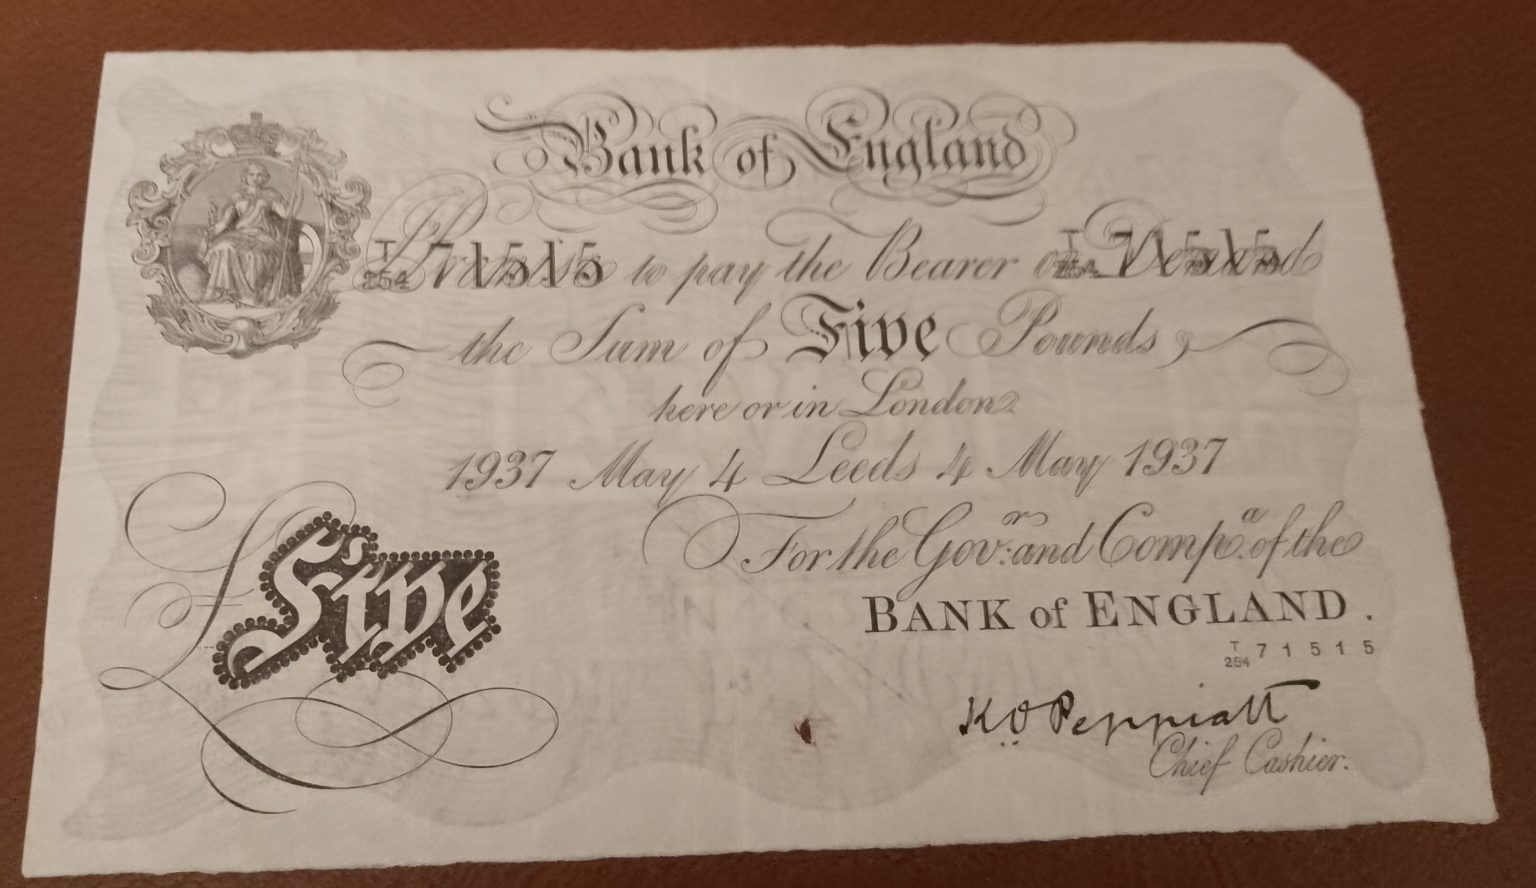 Bank of England
T 254 71515 I Promise to pay the Bearer on Demand T 254 71515
the Sum of Five Pounds
here or in London
1937 May 4 Leeds 4 May 1937
For the Govʳ: and Compᵃ. of the
BANK of ENGLAND.
T 254 71515
£Five
K O Peppiatt
Chief Cashier.